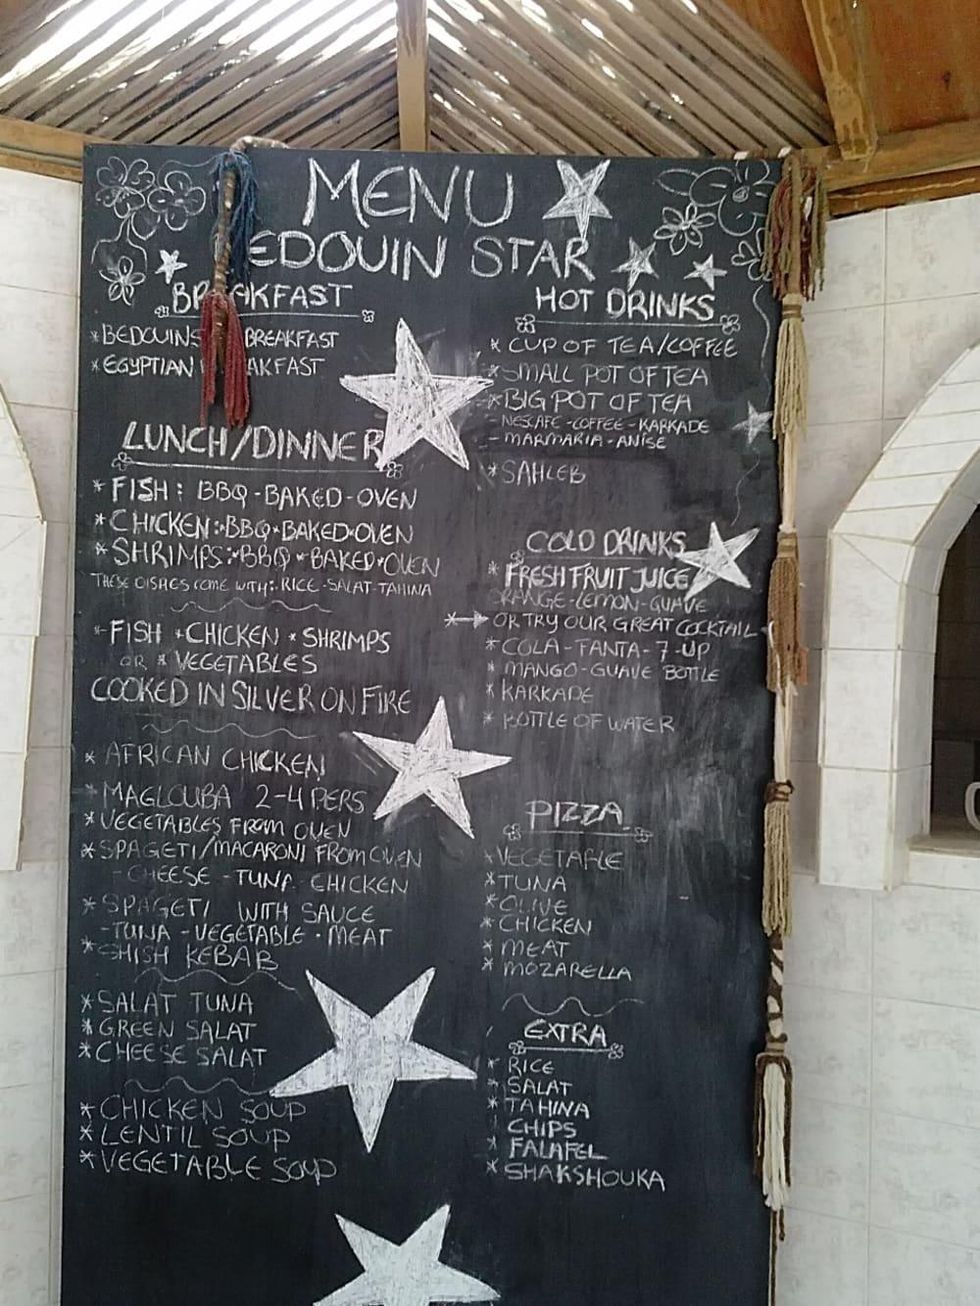 MENU
EDOUIN STAR
BREAKFAST
* BEDOUINS BREAKFAST
* EGYPTIAN AKFAST
LUNCH/DINNER
* FISH: BBQ - BAKED - OVEN
* CHICKEN: BBQ * BAKED * OVEN
* SHRIMPS: BBQ * BAKED * OVEN
THESE DISHES COME WITH: RICE - SALAT - TAHINA
* FISH * CHICKEN * SHRIMPS
OR * VEGETABLES
COOKED IN SILVER ON FIRE
* AFRICAN CHICKEN
* MAGLOUBA 2-4 PERS
* VEGETABLES FROM OVEN
* SPAGETI/MACARONI FROM OVEN
- CHEESE - TUNA - CHICKEN
* SPAGETI WITH SAUCE
- TUNA - VEGETABLE - MEAT
* SHISH KEBAB
* SALAT TUNA
* GREEN SALAT
* CHEESE SALAT
* CHICKEN SOUP
* LENTIL SOUP
* VEGETABLE SOUP
HOT DRINKS
* CUP OF TEA/COFFEE
* SMALL POT OF TEA
* BIG POT OF TEA
- NESCAFE - COFFEE - KARKADE
- MARMARIA - ANISE
* SAHLEB
COLD DRINKS
* FRESH FRUIT JUICE
ORANGE - LEMON - GUAVE
* OR TRY OUR GREAT COCKTAIL
* COLA - FANTA - 7-UP
* MANGO - GUAVE BOTTLE
* KARKADE
* BOTTLE OF WATER
PIZZA
* VEGETABLE
* TUNA
* OLIVE
* CHICKEN
* MEAT
* MOZARELLA
EXTRA
* RICE
* SALAT
* TAHINA
* CHIPS
* FALAFEL
* SHAKSHOUKA